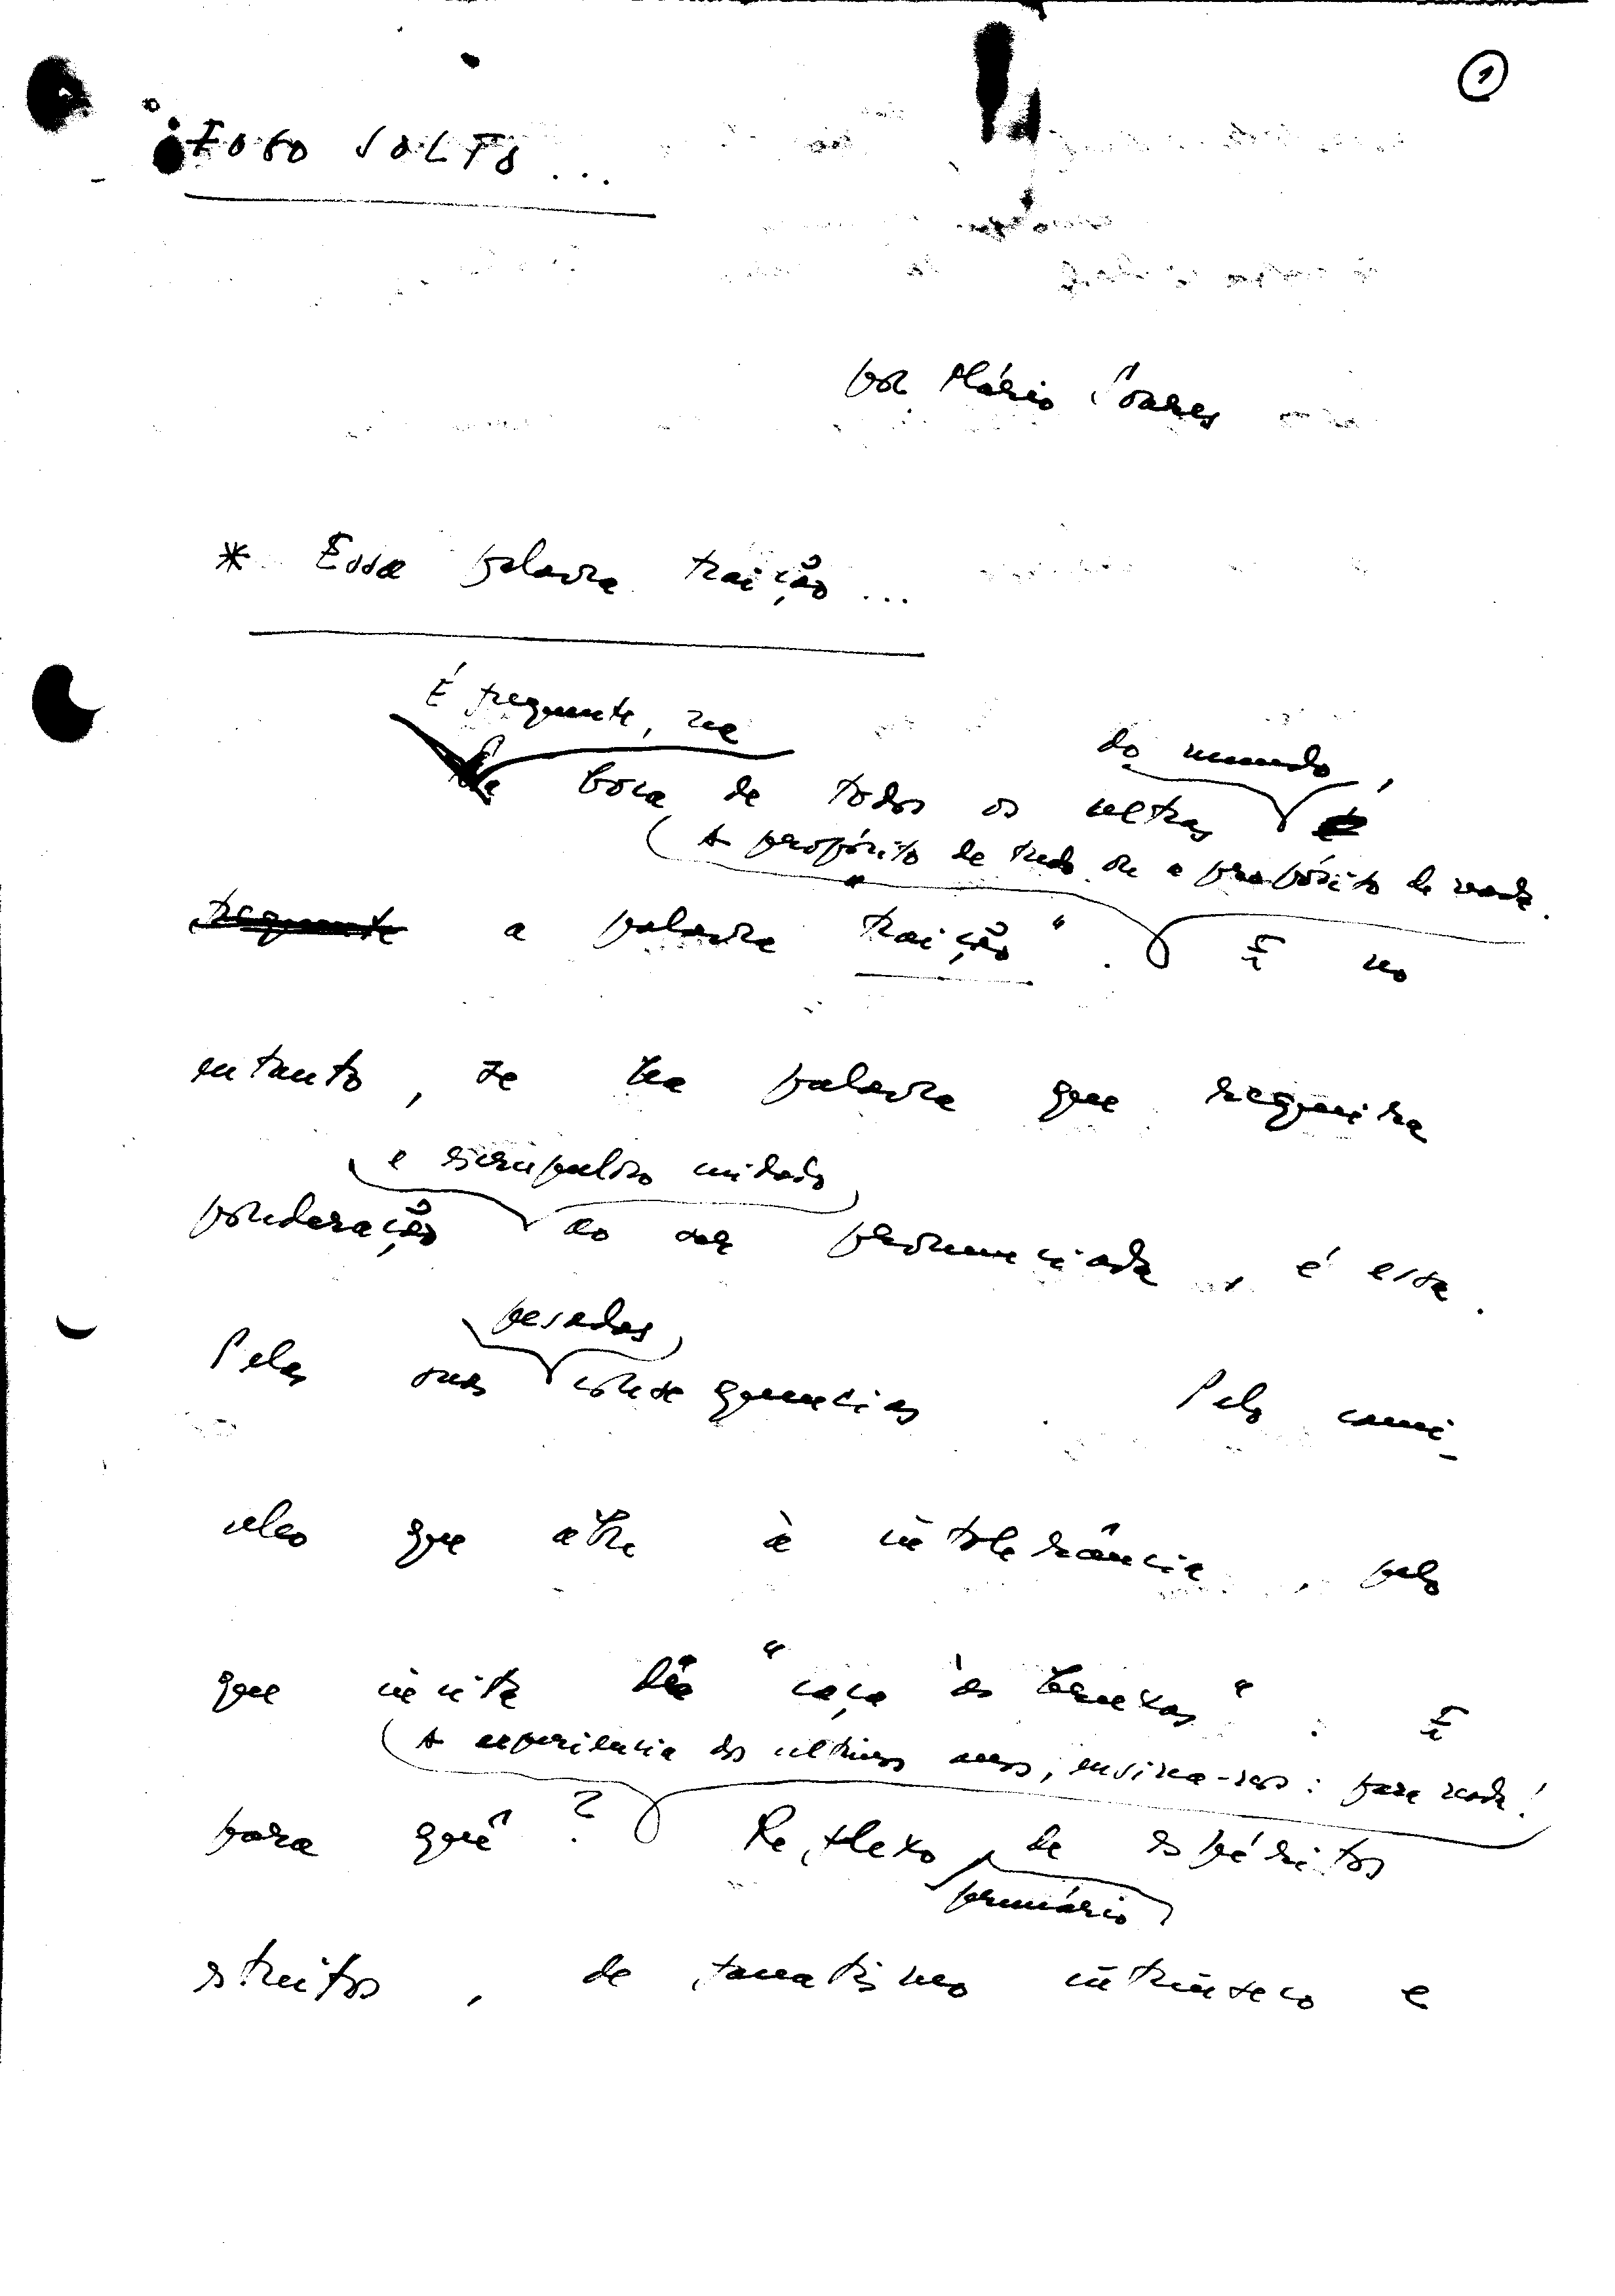 1
FOGO SOLTO...
por Mário Soares
* Essa palavra traição...
É frequente, na
do mundo,
boca de todos os ultras
A propósito de tudo ou a propósito de nada.
frequente a palavra "traição". E no
entanto, se há palavra que requeira
e escrupuloso cuidado
ponderação ao ser pronunciada, é essa.
pesadas
Pelas suas consequencias. Pelo cami-
nho que abre à intolerância, pelo
que incita "caça às bruxas". E
A experiencia dos ultimos anos, ensina-nos: para nada!
para quê? Reflexo de espíritos
primário
estreitos, de fanatismo intrinseco e